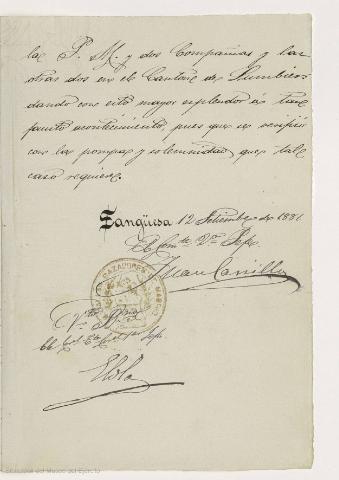 la P. M. y dos Compañias y las
otras dos en el Canton de Lumbier
dando con esto mayor esplendor á tan
fausto acontecimiento, pues que se verificó
con la pompa y solemnidad que tal
caso requiere.
Sangüesa 12 Setiembre de 1881
El Com.te 2º Jefe
Juan Carrillo
CAZADORES
Vº Bº
El Cor.l Tte Cor.l 1er Jefe
Elola
Biblioteca del Museo del Ejército